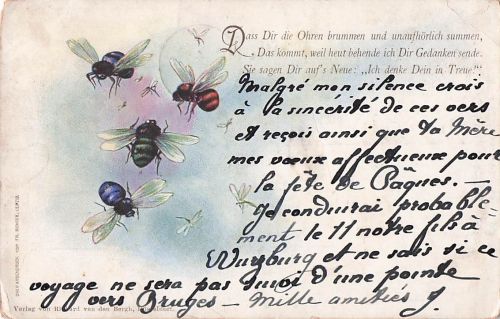 Dass Dir die Ohren brummen und unaufhörlich summen,
Das kommt, weil heut behende ich Dir Gedanken sende.
Sie sagen Dir auf's Neue: „Ich denke Dein in Treue!“
Malgré mon silence crois
à la sincérité de ces vers
et reçois ainsi que ta Mère
mes vœux affectueux pour
la fête de Pâques. —
Je conduirai probable-
ment le 11 notre fils à
Wurzburg et ne sais si ce
voyage ne sera pas suivi d'une pointe
vers Bruges — Mille amitiés
Verlag von Richard van den Bergh,